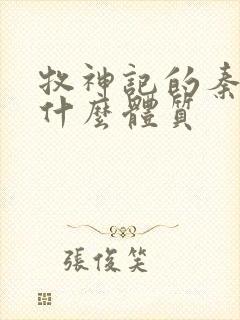 牧神記的秦
什麼體質
張俊笑